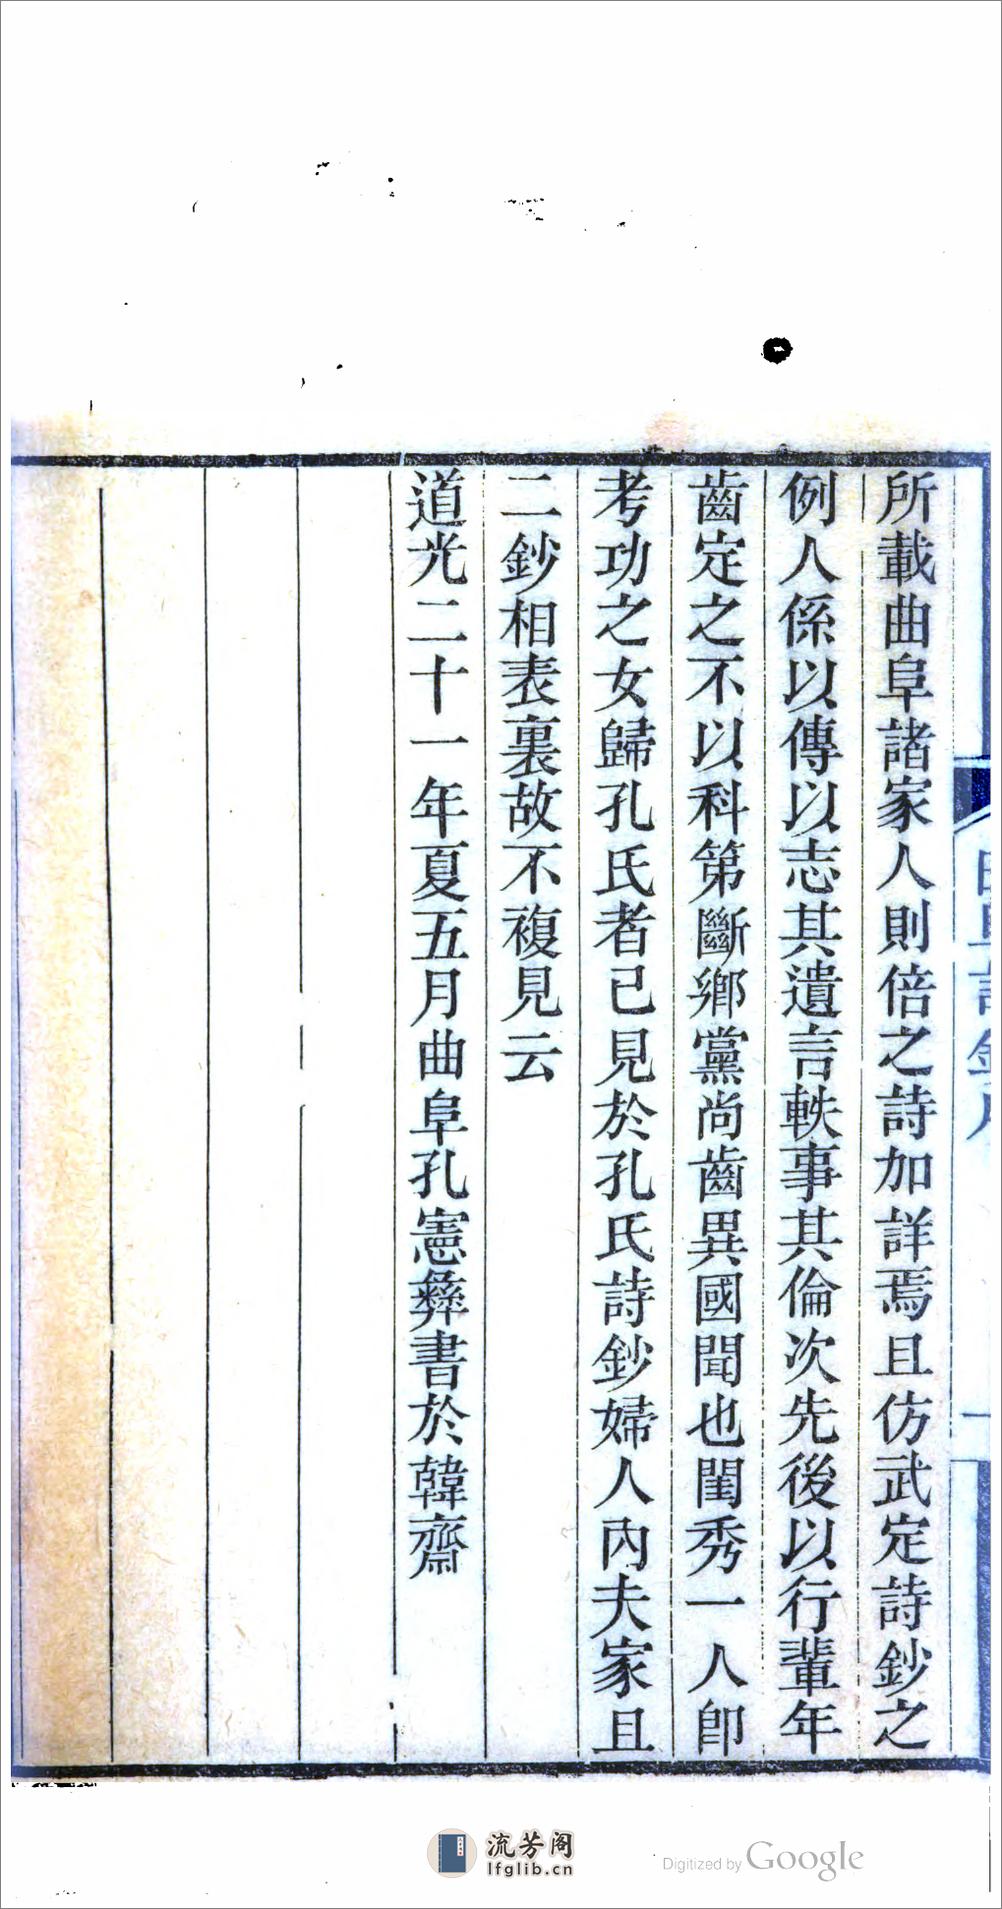 所載曲阜諸家人則倍之詩加詳焉且仿武定詩鈔之
例人係以傳以志其遺言軼事其倫次先後以行輩年
齒定之不以科第斷鄉黨尚齒異國聞也閨秀一人卽
考功之女歸孔氏者已見於孔氏詩鈔婦人內夫家且
二鈔相表裏故不複見云
道光二十一年夏五月曲阜孔憲彝書於韓齋
流芳阁
lfglib.cn
Digitized by Google